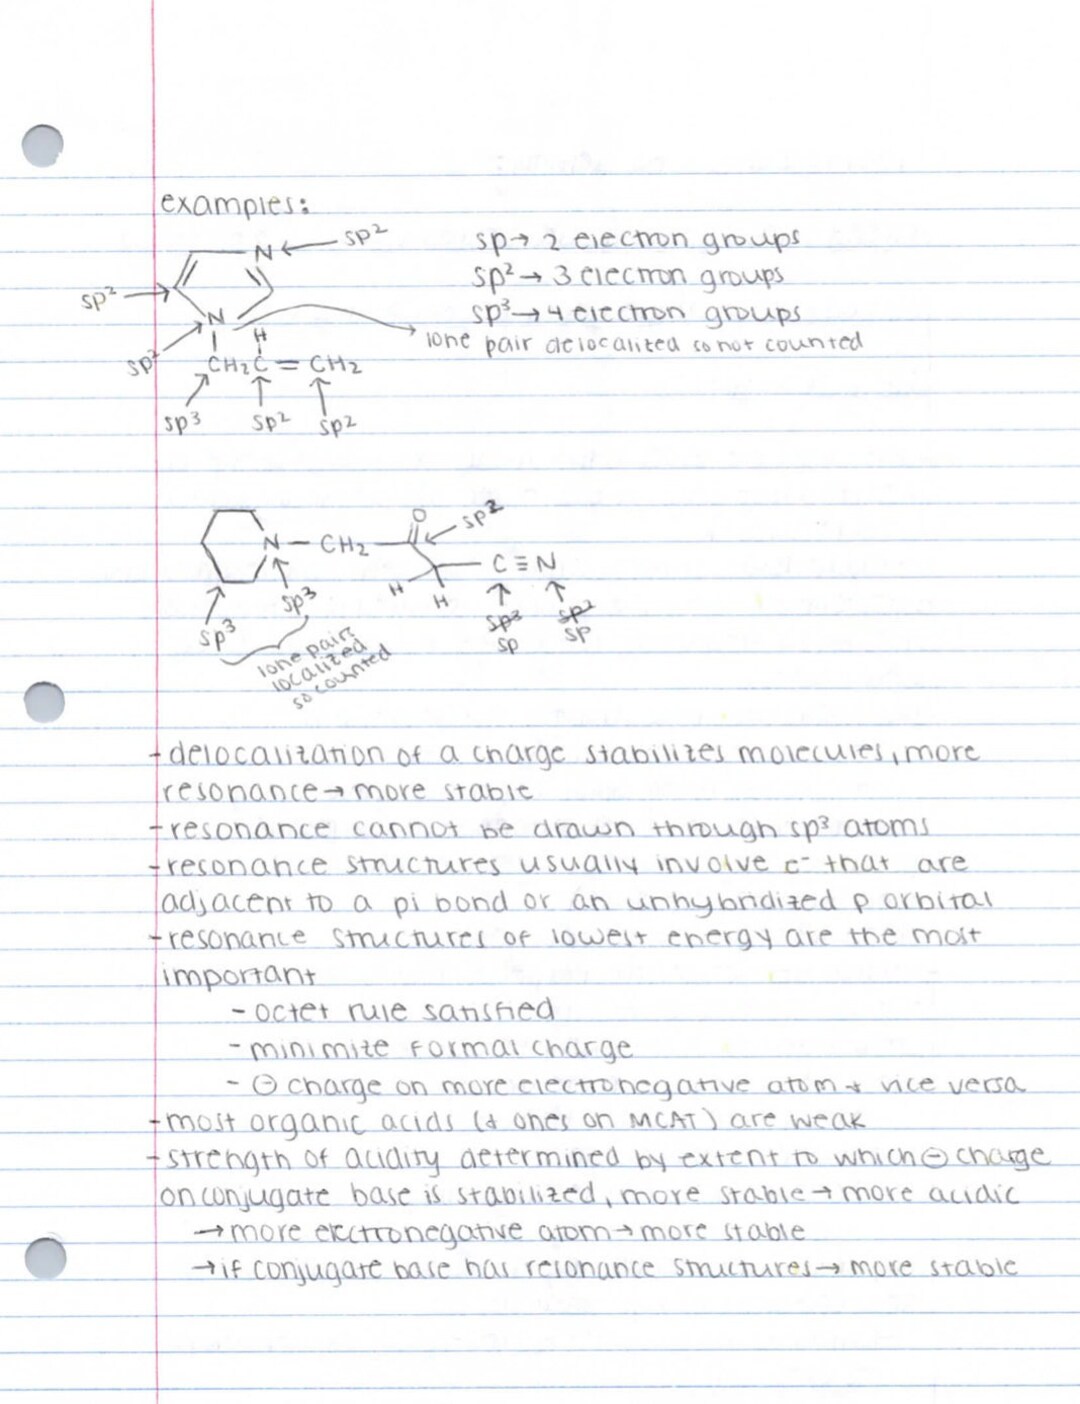 examples:
N ← sp²
sp → 2 electron groups
sp² → 3 electron groups
sp² →
N
sp³ → 4 electron groups
lone pair delocalized so not counted
sp²
H
CH₂C = CH₂
sp³ sp² sp²
O
sp²
N – CH₂
C ≡ N
H
H
sp³
sp³
sp³ sp²
sp sp
lone pairs
localized
so counted
- delocalization of a charge stabilizes molecules, more
resonance → more stable
- resonance cannot be drawn through sp³ atoms
- resonance structures usually involve e⁻ that are
adjacent to a pi bond or an unhybridized p orbital
- resonance structures of lowest energy are the most
important
- octet rule satisfied
- minimize formal charge
- ⊖ charge on more electronegative atom + vice versa
- most organic acids (+ ones on MCAT) are weak
- strength of acidity determined by extent to which ⊖ charge
on conjugate base is stabilized, more stable → more acidic
→ more electronegative atom → more stable
→ if conjugate base has resonance structures → more stable